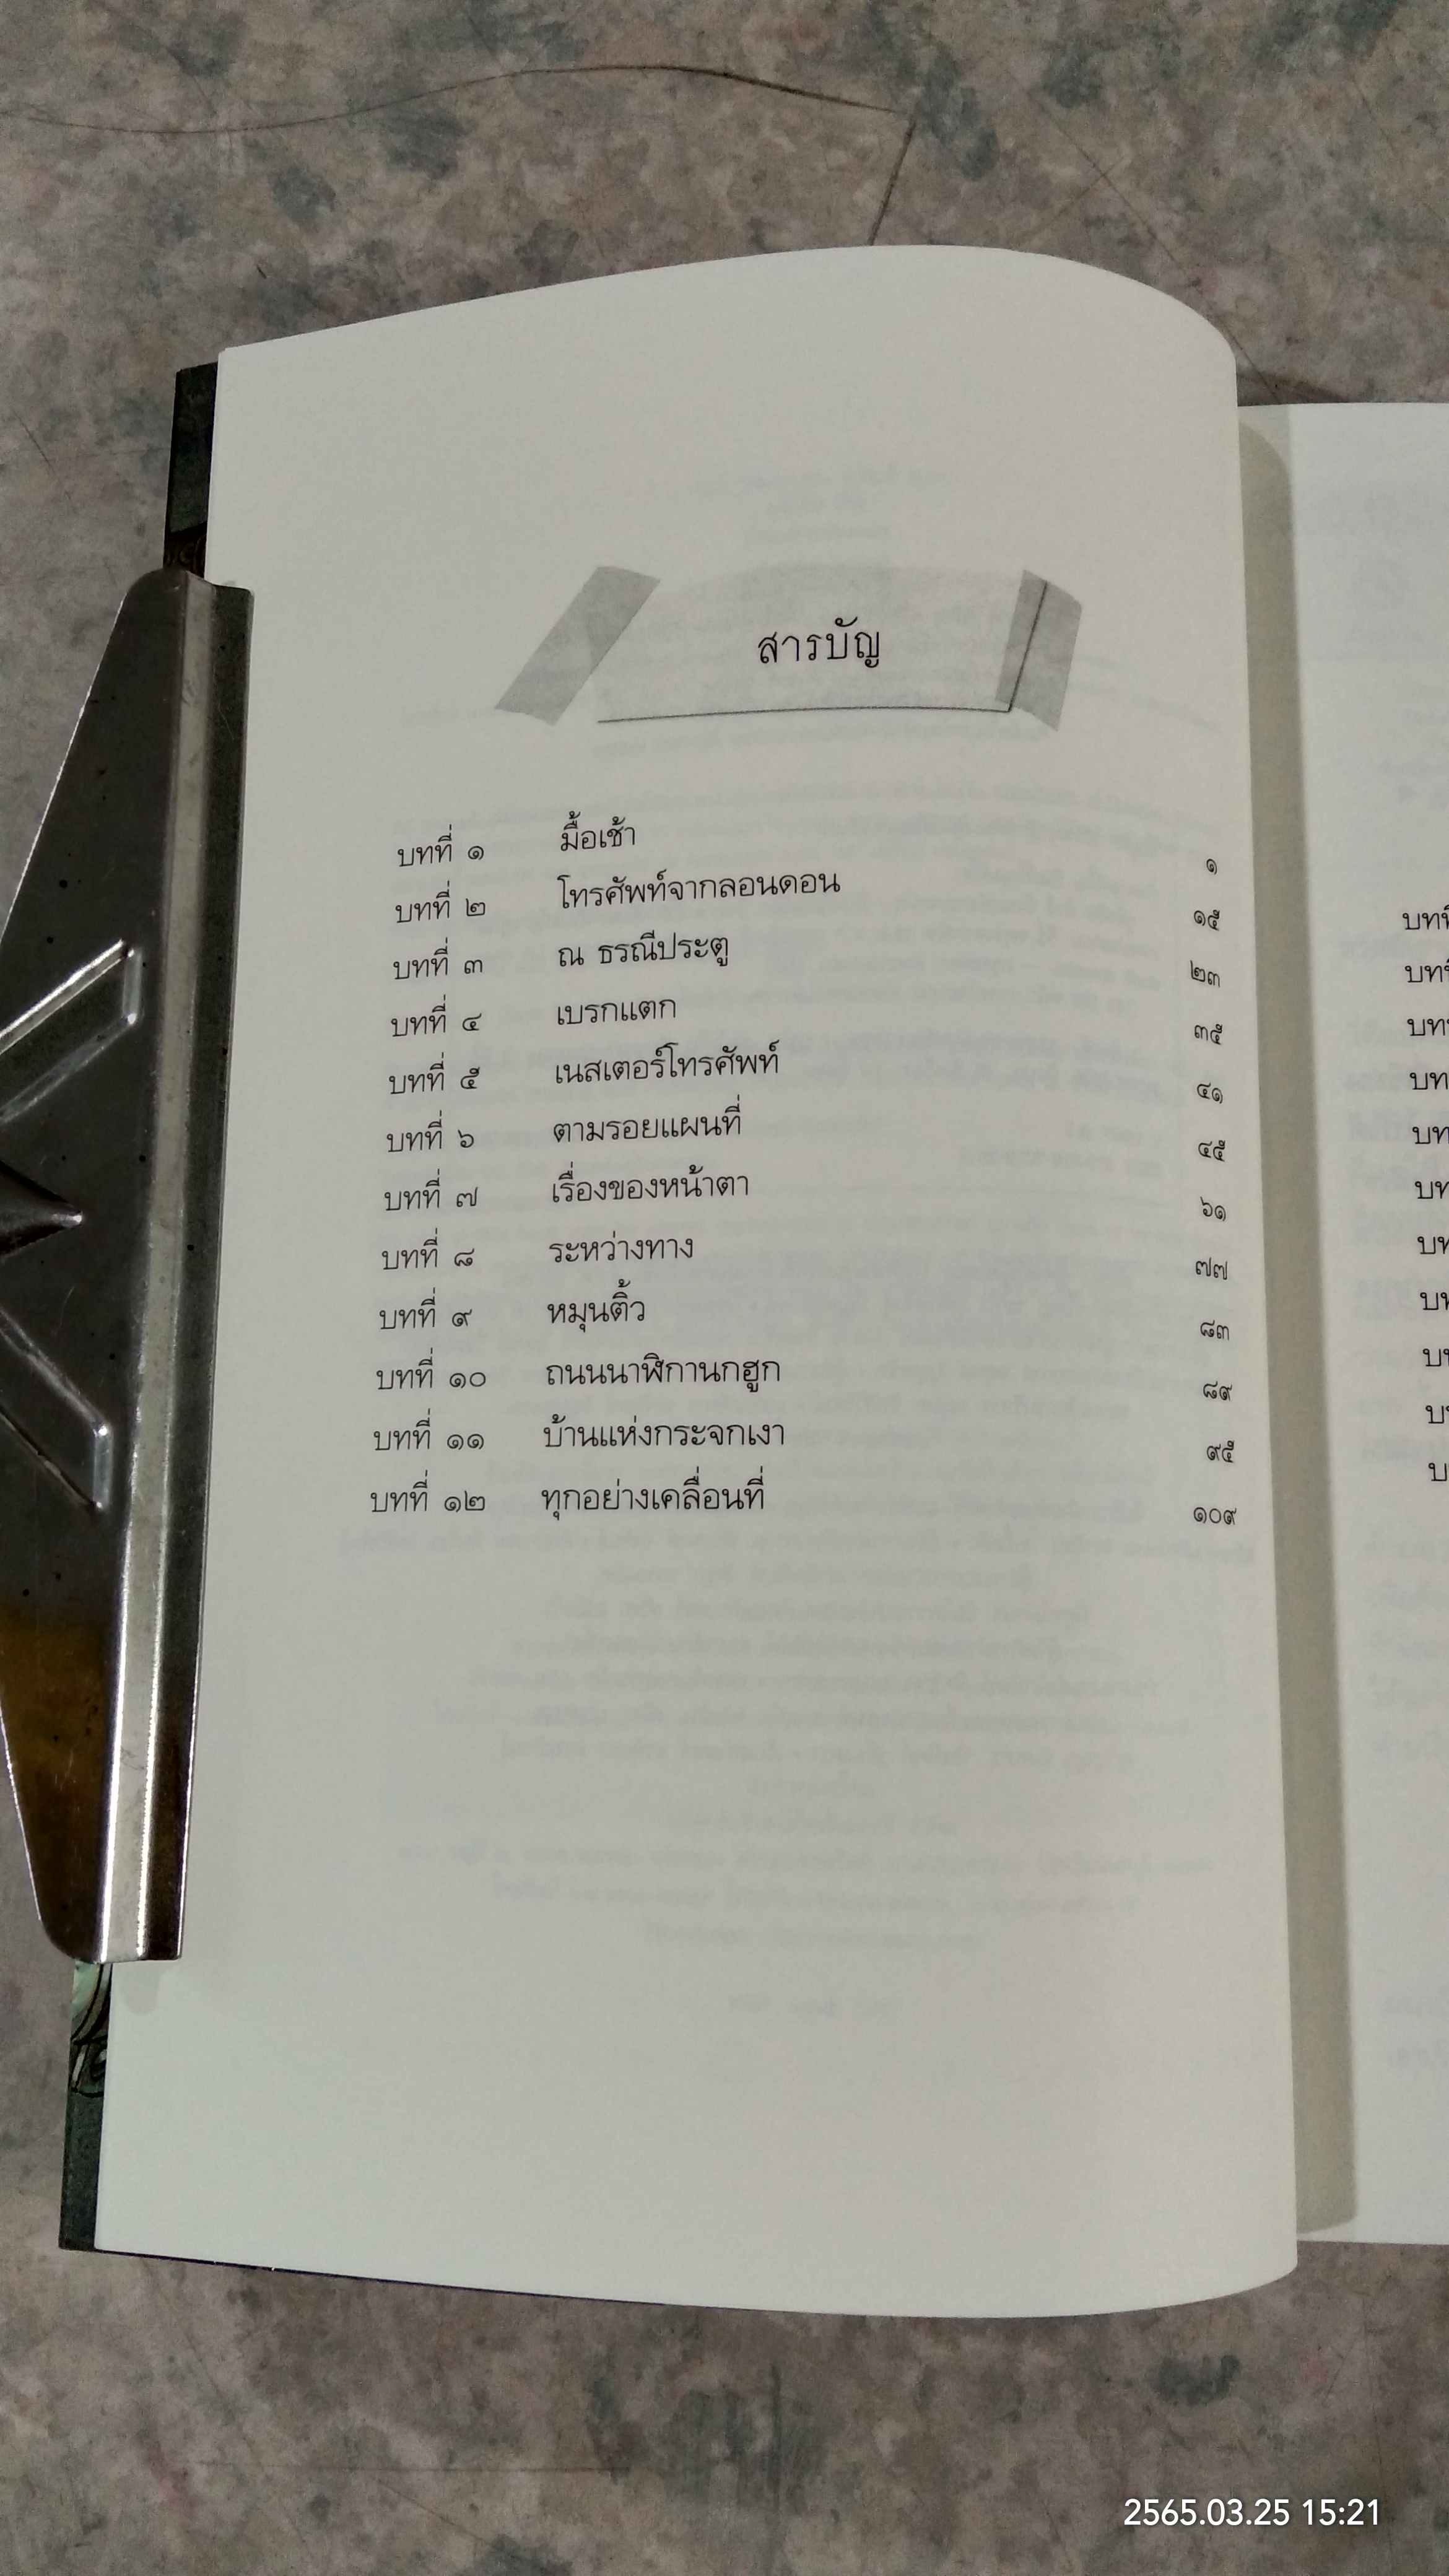 สารบัญ
บทที่ ๑ มื้อเช้า ๑
บทที่ ๒ โทรศัพท์จากลอนดอน ๑๕
บทที่ ๓ ณ ธรณีประตู ๒๓
บทที่ ๔ เบรกแตก ๓๕
บทที่ ๕ เนสเตอร์โทรศัพท์ ๔๑
บทที่ ๖ ตามรอยแผนที่ ๔๕
บทที่ ๗ เรื่องของหน้าตา ๖๑
บทที่ ๘ ระหว่างทาง ๗๗
บทที่ ๙ หมุนติ้ว ๘๓
บทที่ ๑๐ ถนนนาฬิกานกฮูก ๘๙
บทที่ ๑๑ บ้านแห่งกระจกเงา ๙๕
บทที่ ๑๒ ทุกอย่างเคลื่อนที่ ๑๐๙
2565.03.25 15:21